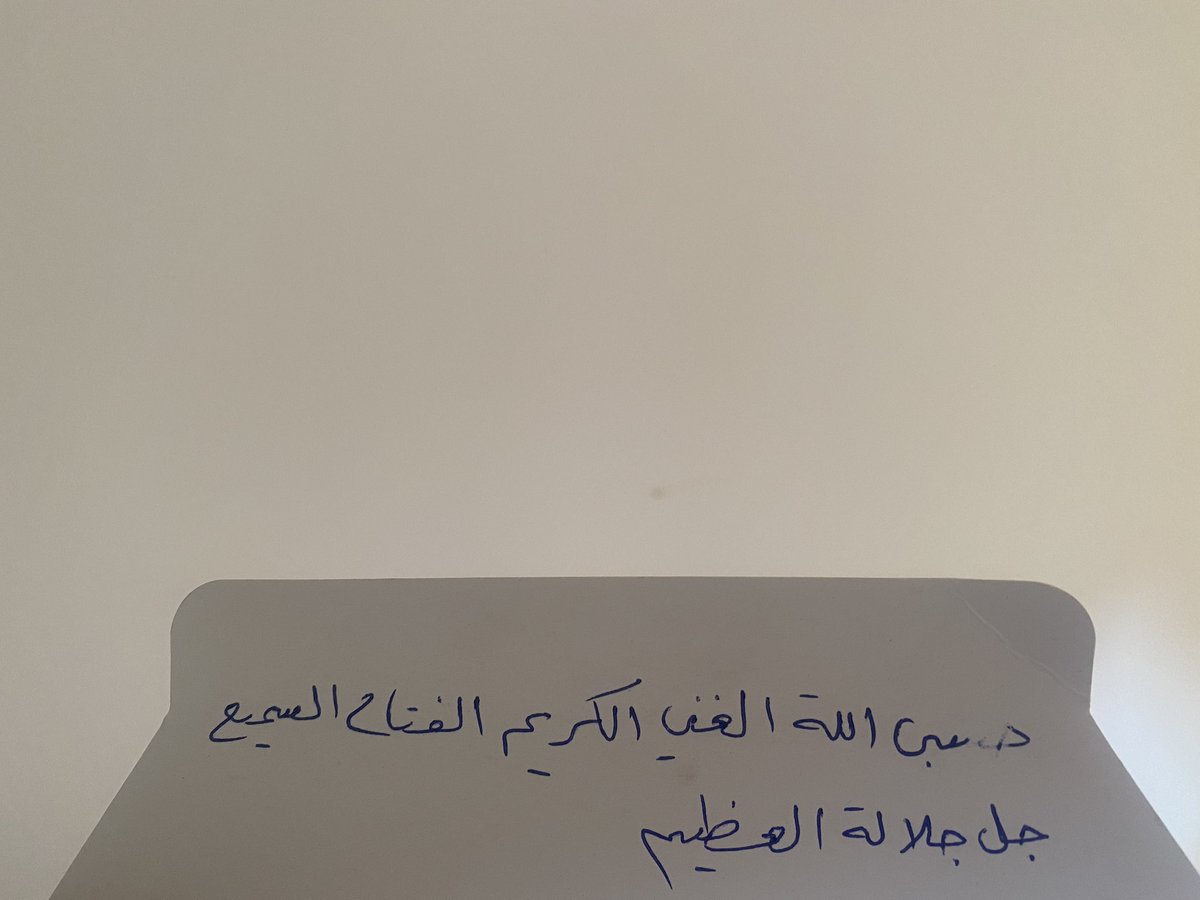 حسبي اللة الغني الكريم الفتاح السميع
جل جلالة العظيم